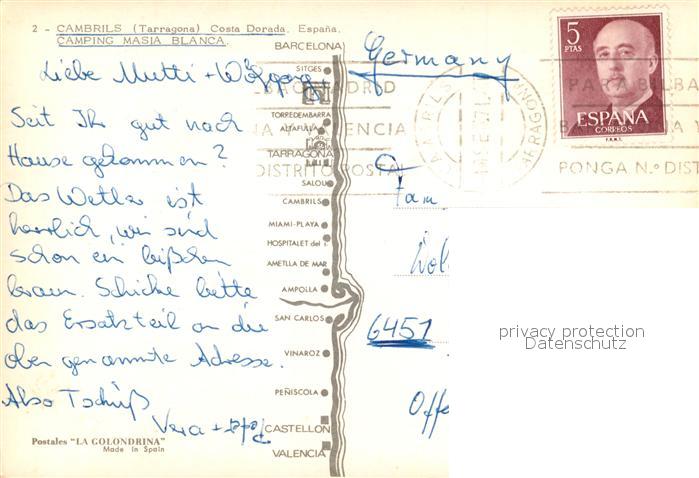 2 - CAMBRILS (Tarragona) Costa Dorada. España.
CAMPING MASIA BLANCA.
Liebe Mutti + Wolfgang,
Seit Ihr gut nach
Hause gekommen?
Das Wetter ist
herrlich, wir sind
schon ein bißchen
braun. Schicke bitte
das Ersatzteil an die
oben genannte Adresse.
Also Tschüß
Vera +
Postales "LA GOLONDRINA"
Made in Spain
BARCELONA
SITGES
TORREDEMBARRA
ALTAFULLA
TARRAGONA
SALOU
CAMBRILS
MIAMI-PLAYA
HOSPITALET del I.
AMETLLA DE MAR
AMPOLLA
SAN CARLOS
VINAROZ
PEÑISCOLA
CASTELLON
VALENCIA
Germany
5
PTAS
ESPAÑA
CORREOS
F.N.M.T.
CAMBRILS
TARRAGONA
MADRID
PARA BILBA
VALENCIA
DISTRITO COSTA
PONGA N.º DIST
Fam
6451
Offe
privacy protection
Datenschutz